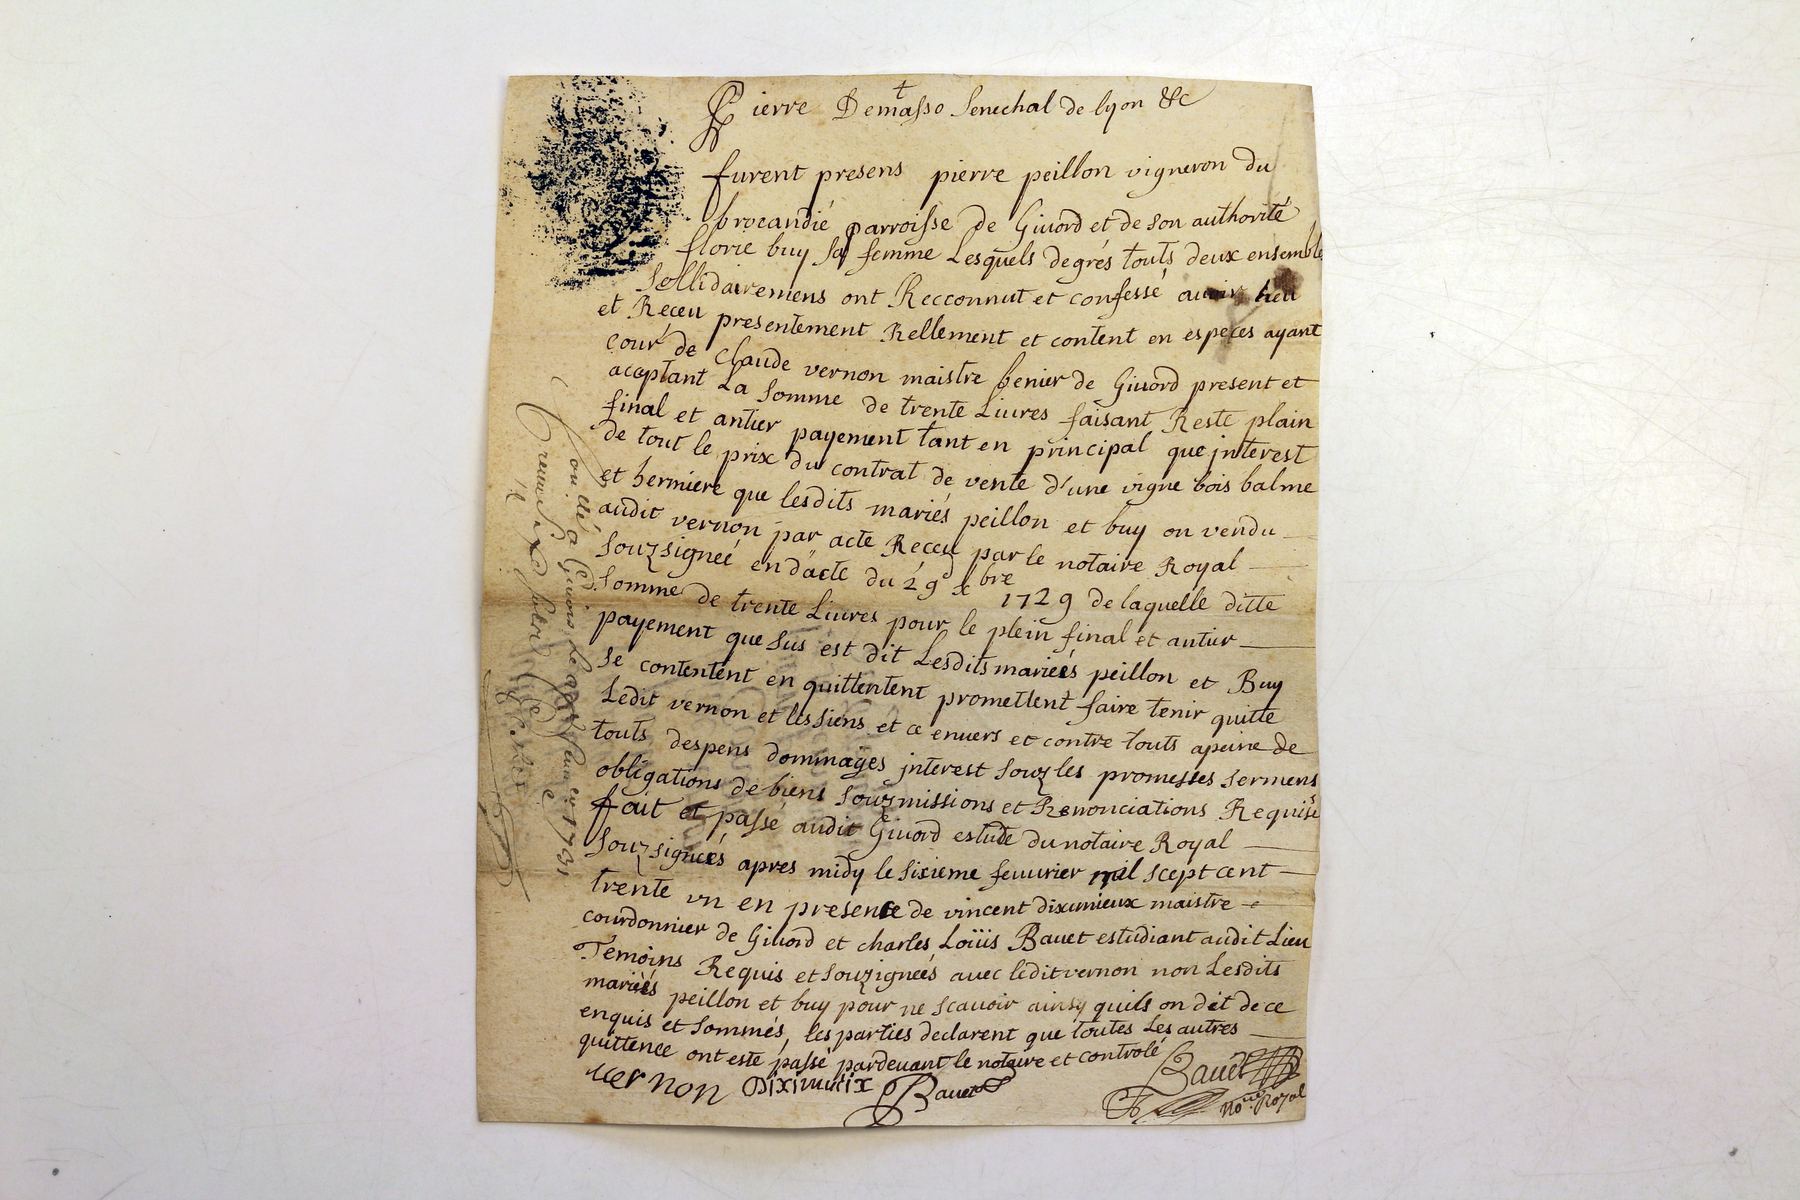 Pierre Demasso Senechal de lyon &c
furent presens pierre peillon vigneron du
brocandié parroisse de Giuord et de son authorité
florie buy sa femme Lesquels degrés touts deux ensemble
Sollidairemens ont Recconnut et confessé auoir heu
et Receu presentement Rellement et content en especes ayant
cour de claude vernon maistre benier de Giuord present et
aceptant La Somme de trente Liures faisant Reste plain
final et antier payement tant en principal que jnterest
de tout le prix du contrat de vente d'une vigne bois balme
et hermiere que lesdits mariés peillon et buy on vendu
audit vernon par acte Receu par le notaire Royal
Souzsigneé en dacte du 29 xbre 1729 de laquelle ditte
Somme de trente Liures pour le plein final et antier
payement que sus est dit Lesdits marieés peillon et Buy
se contentent en quittentent promettent faire tenir quitte
Ledit vernon et les siens et ce enuers et contre touts apeine de
touts despens dommages jnterest souz les promesses sermens
obligations de biens souzmissions et Renonciations Requise
fait et passé audit Giuord estude du notaire Royal
Souzsigneés apres midy le sixieme feuurier mil scept cent
trente vn en presence de vincent diximieux maistre
courdonnier de Giuord et charles Loüis Bauet estudiant audit Lieu
Temoins Requis et souzigneés auec ledit vernon non Lesdits
mariés peillon et buy pour ne scauoir ainsy quils on dit de ce
enquis et sommés, les parties declarent que toutes Les autres
quittence ont esté passé pardeuant le notaire et controlé
vernon Diximieix Bauet Bauet
No.re Royal
Controllé a Giuors le
feurier 1731
receu six sols